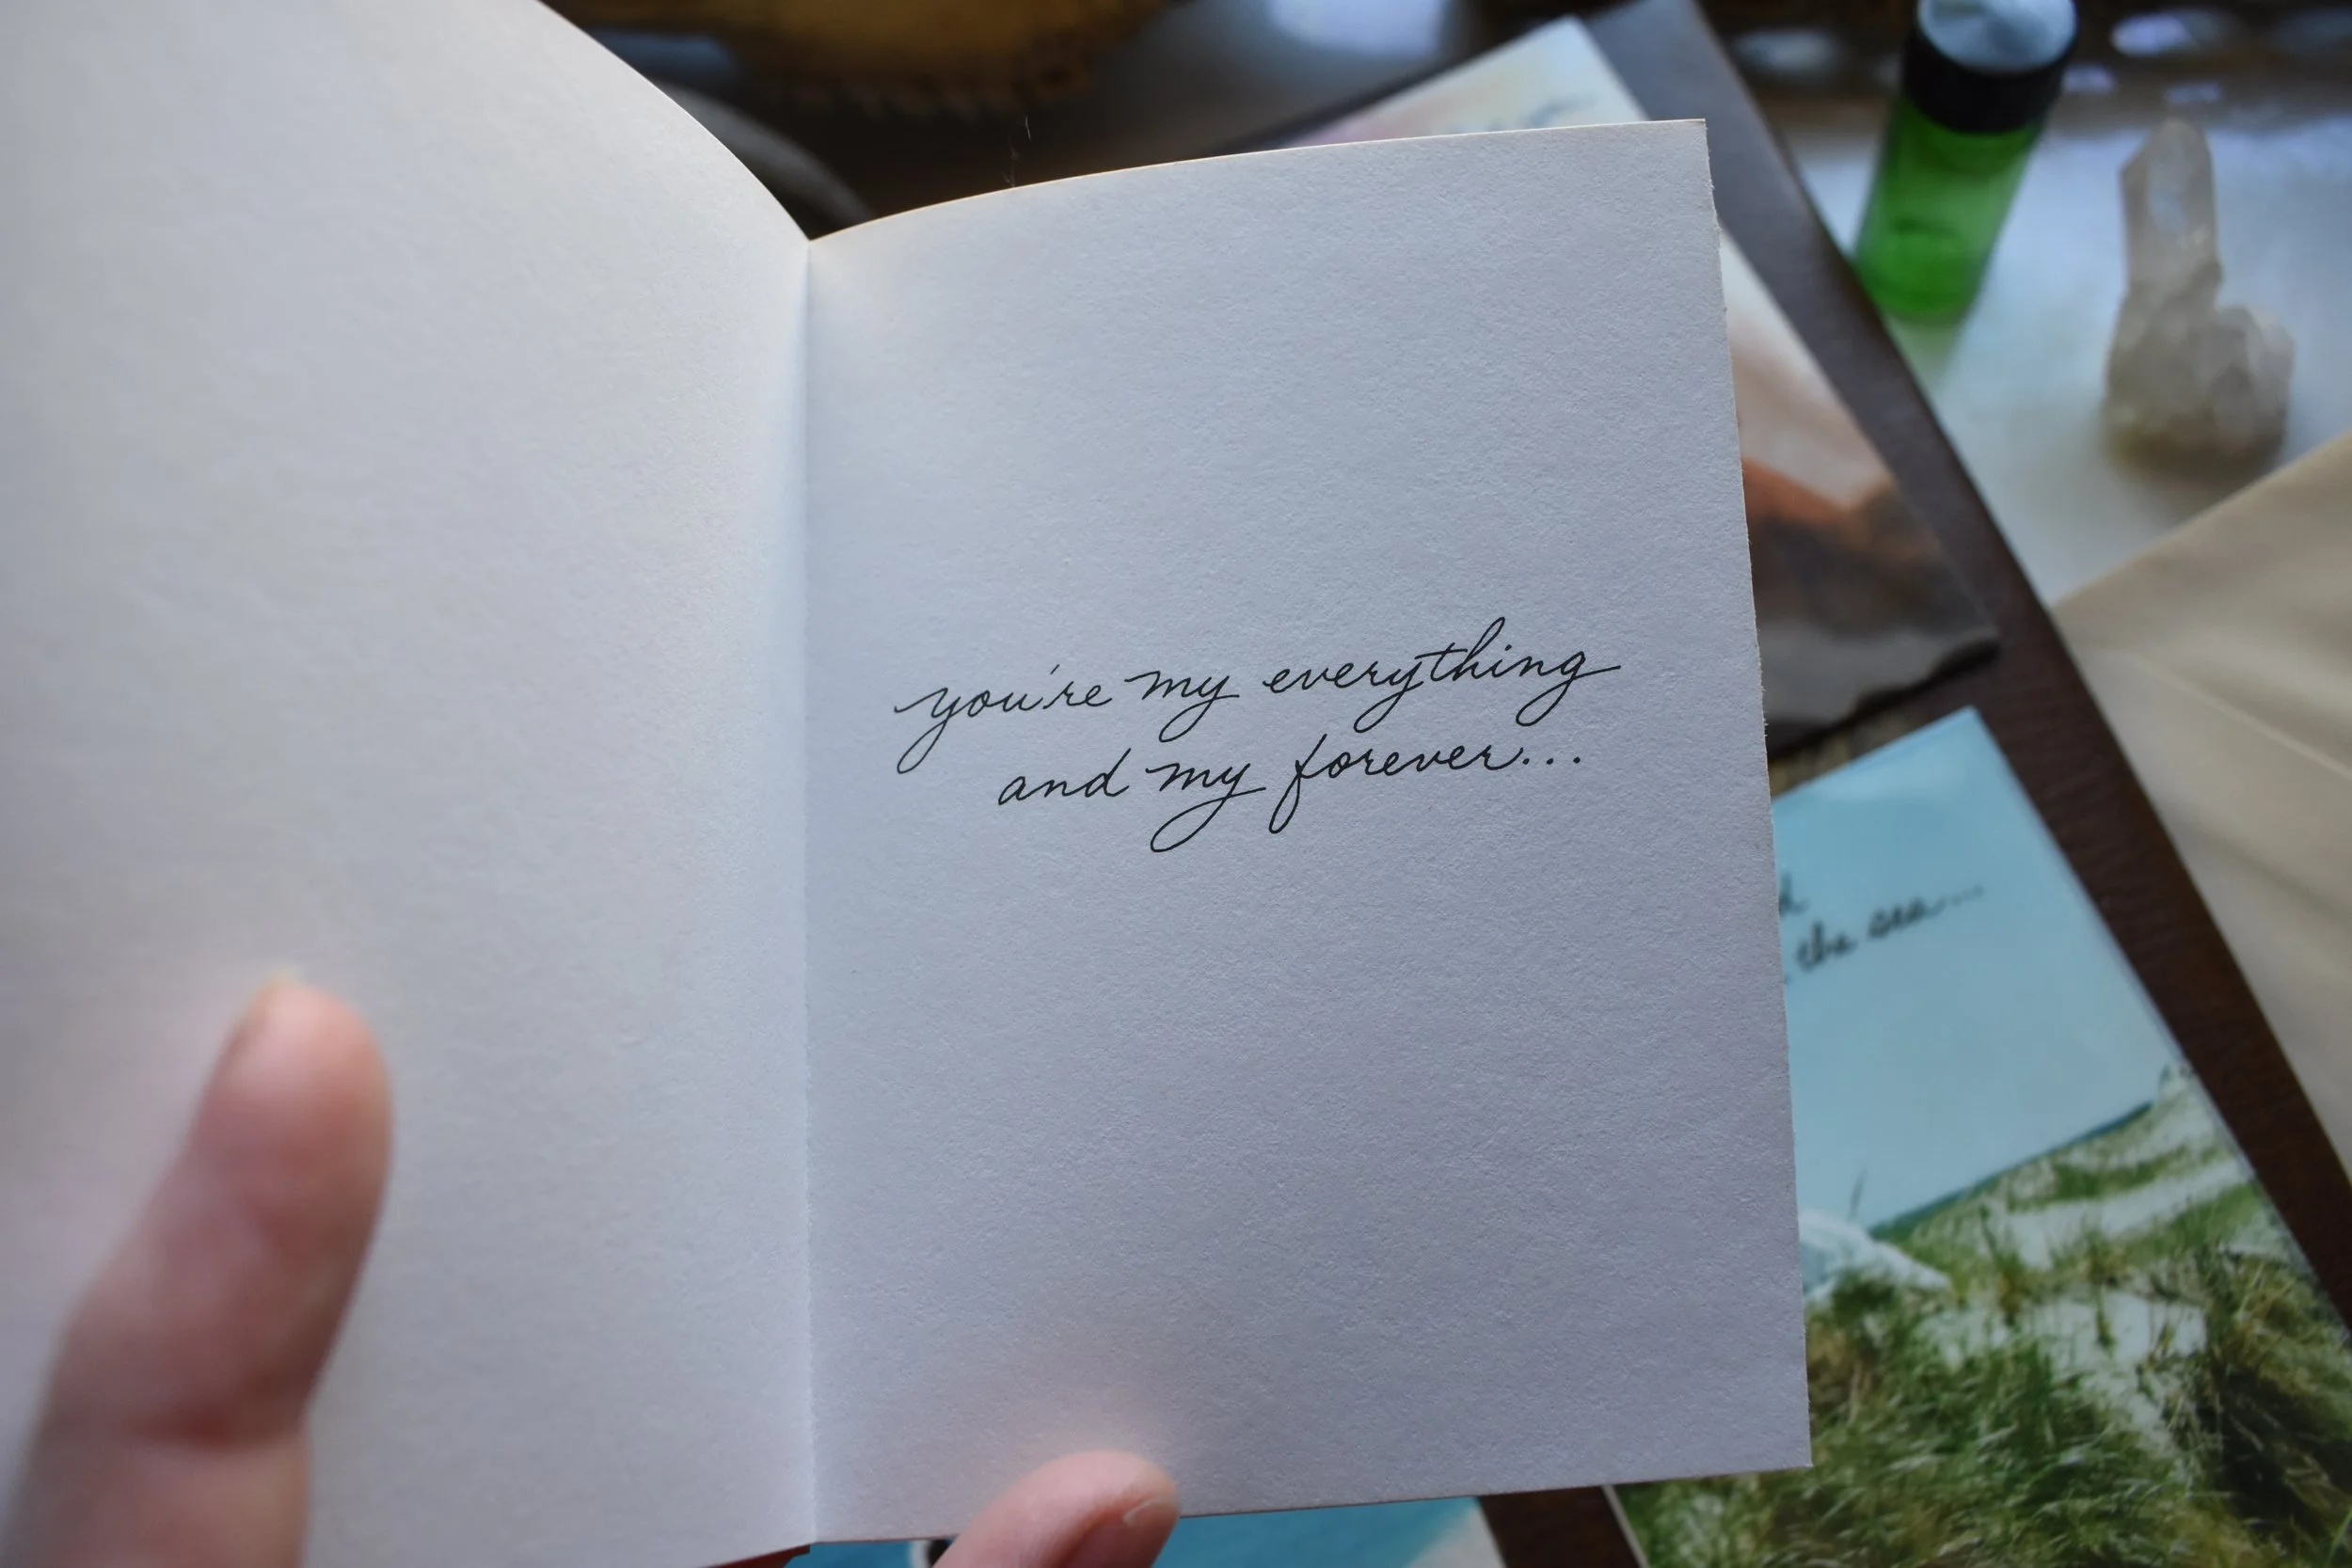 you're my everything
and my forever...
the sea...